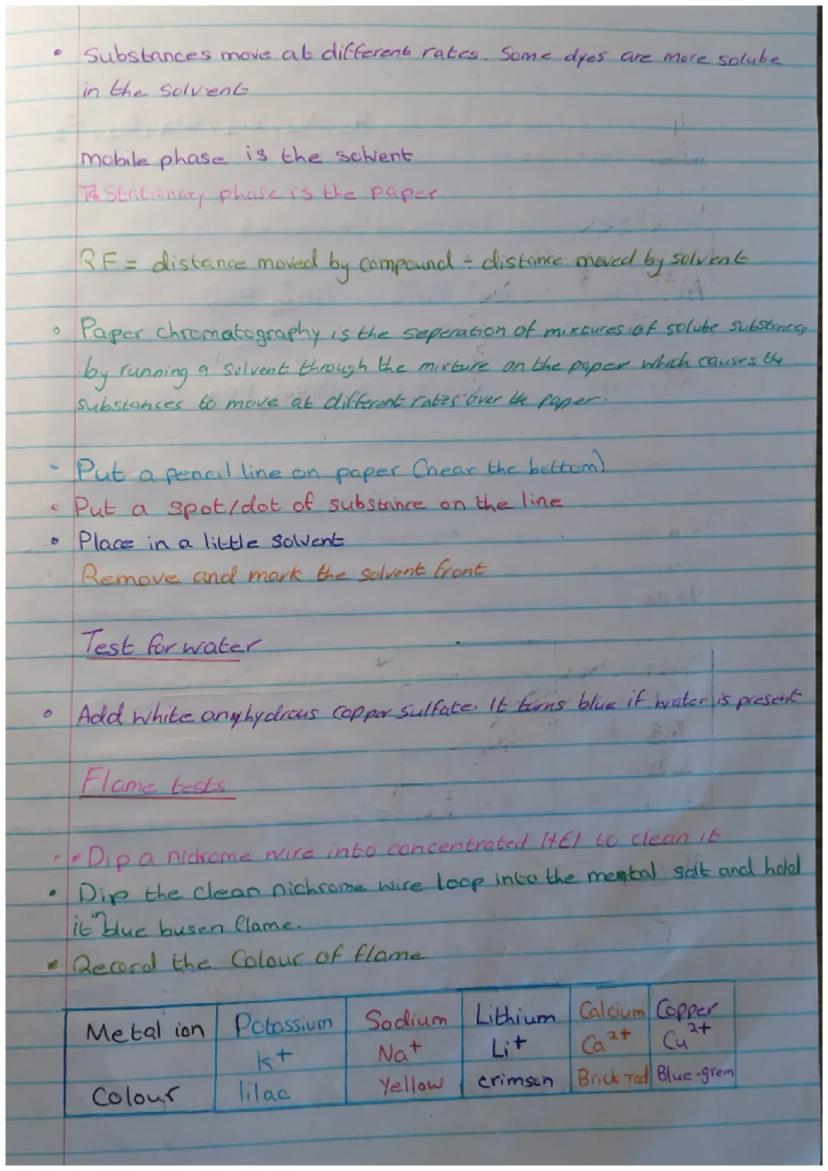 • Substances move at different rates. Some dyes are more solube
in the solvent
mobile phase is the solvent
Stationary phase is the paper
RF = distance moved by compound ÷ distance moved by solvent
• Paper chromatography is the seperation of mixtures of solube substances
by running a solvent through the mixture on the paper which causes the
substances to move at different rates over the paper.
- Put a pencil line on paper (near the bottom)
• Put a spot/dot of substance on the line
• Place in a little solvent
Remove and mark the solvent front
Test for water
• Add white anyhydrous copper sulfate. It turns blue if water is present
Flame tests
• Dip a nichrome wire into concentrated HCl to clean it
• Dip the clean nichrome wire loop into the metal salt and hold
it in blue busen flame.
• Record the Colour of flame
Metal ion Potassium Sodium Lithium Calcium Copper
K+ Na+ Li+ Ca2+ Cu2+
Colour lilac Yellow crimson Brick red Blue-green